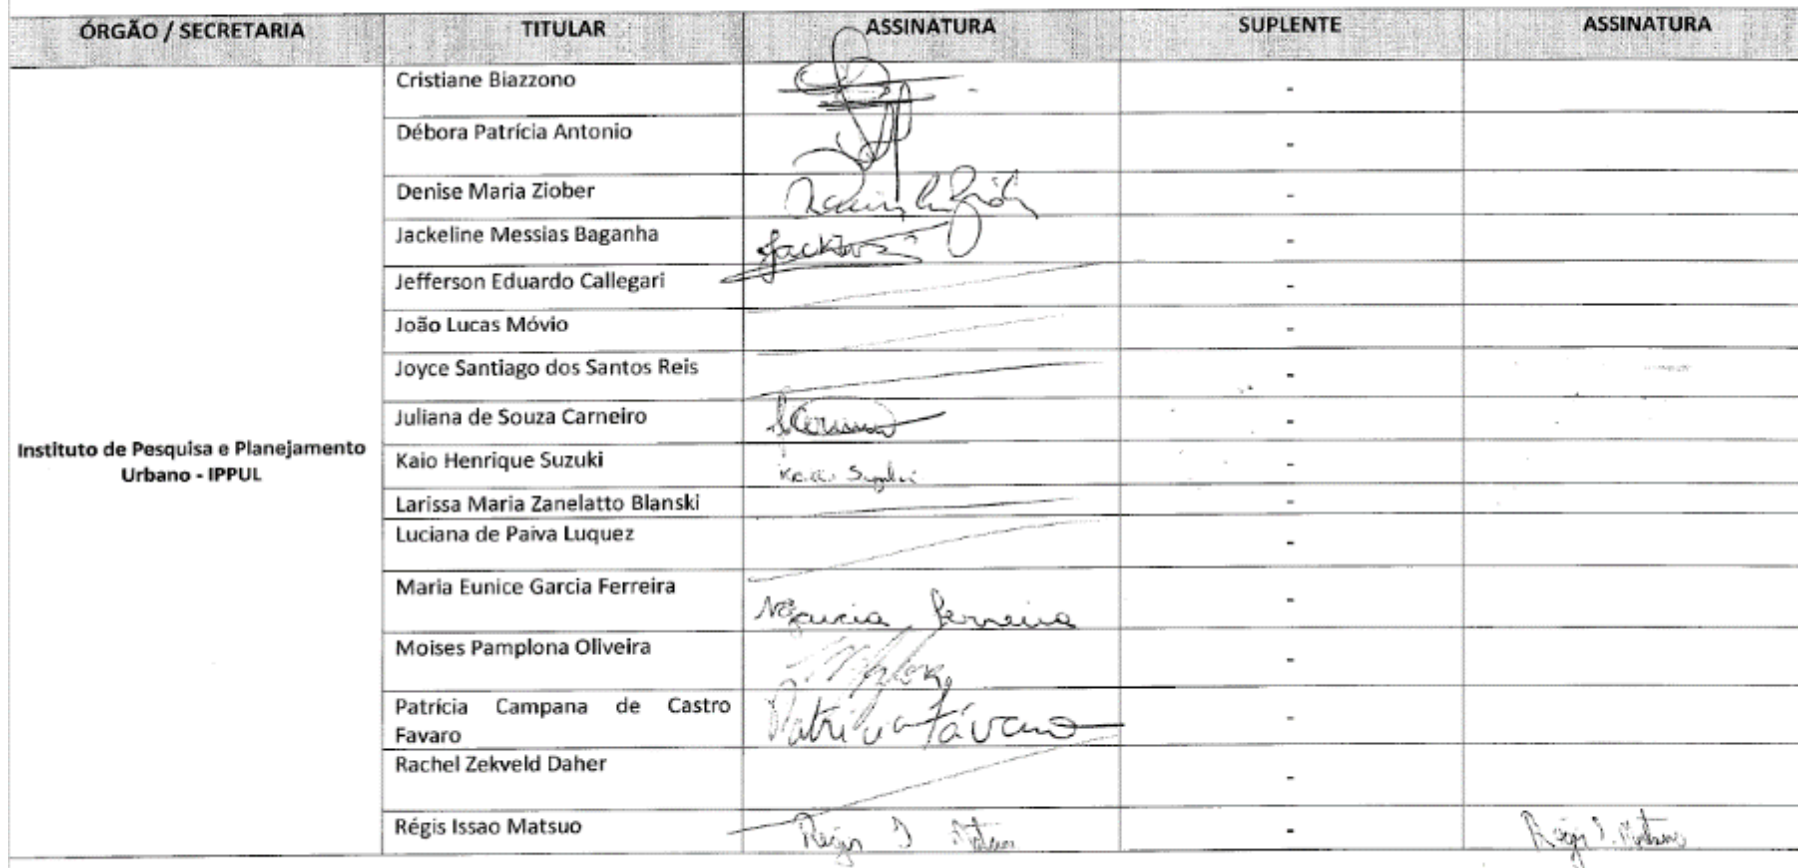 ÓRGÃO / SECRETARIA TITULAR ASSINATURA SUPLENTE ASSINATURA
Instituto de Pesquisa e Planejamento
Urbano - IPPUL
Cristiane Biazzono -
Débora Patrícia Antonio -
Denise Maria Ziober -
Jackeline Messias Baganha -
Jefferson Eduardo Callegari -
João Lucas Móvio -
Joyce Santiago dos Santos Reis -
Juliana de Souza Carneiro -
Kaio Henrique Suzuki Kaio Suzuki -
Larissa Maria Zanelatto Blanski -
Luciana de Paiva Luquez -
Maria Eunice Garcia Ferreira Garcia Ferreira -
Moises Pamplona Oliveira -
Patrícia Campana de Castro
Favaro Patrícia Fávaro -
Rachel Zekveld Daher -
Régis Issao Matsuo Regis I Matsuo - Regis I. Matsuo